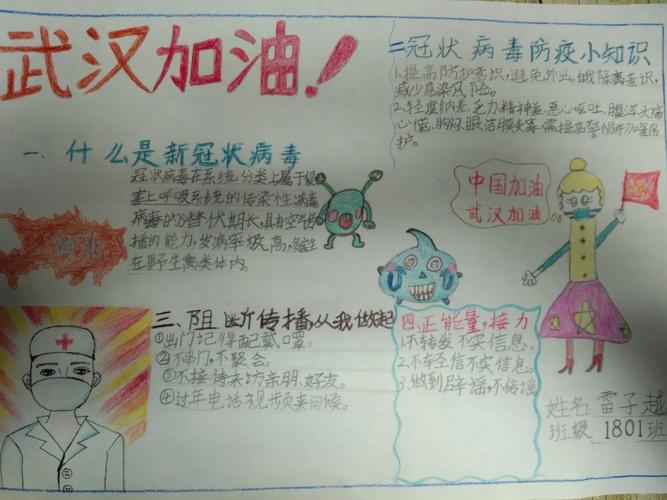 武汉加油!
一、什么是新冠状病毒
冠状病毒在系统分类上属于
塞上呼吸系统的传染性病毒
病毒的潜伏期长,具有空气传
播的能力,发病率极高,
在野生禽类体内。
湖北
二冠状病毒防疫小知识
1.提高防护意识,避免外出。自我隔离意识,
减少感染风险。
2、轻度纳差、乏力、精神差、恶心呕吐、腹泻头痛
心慌、胸闷、眼洁膜炎等,需提高警惕并加强防
护。
中国加油
武汉加油
三、阻断传播,从我做起
①出门记得配戴口罩。
②不串门,不聚会。
③不接待来访亲朋、好友。
④过年电话视频来问候。
四正能量,接力
1.不转发不实信息。
2.不轻信不实信息。
3.做到辟谣,不传谣
姓名:雷子越
班级 1801班